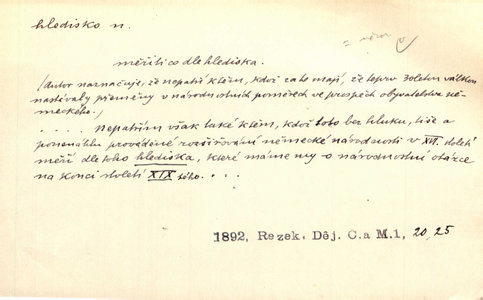 hledisko n.
= názor
měřiti co dle hlediska.
(Autor naznačuje, že nepatří k těm, kdož za to mají, že teprv 30letou válkou
nastávaly přeměny v národnostních poměrech ve prospěch obyvatelstva ně-
meckého.)
. . . . Nepatřím však také k těm, kdož toto bez hluku, tiše a
ponenáhlu prováděné rozšiřování německé národnosti v XVII. století
měří dle toho hlediska, které máme my o národnostní otázce
na konci století XIX tého. . . .
1892, Rezek. Děj. C. a M. 1, 20, 25